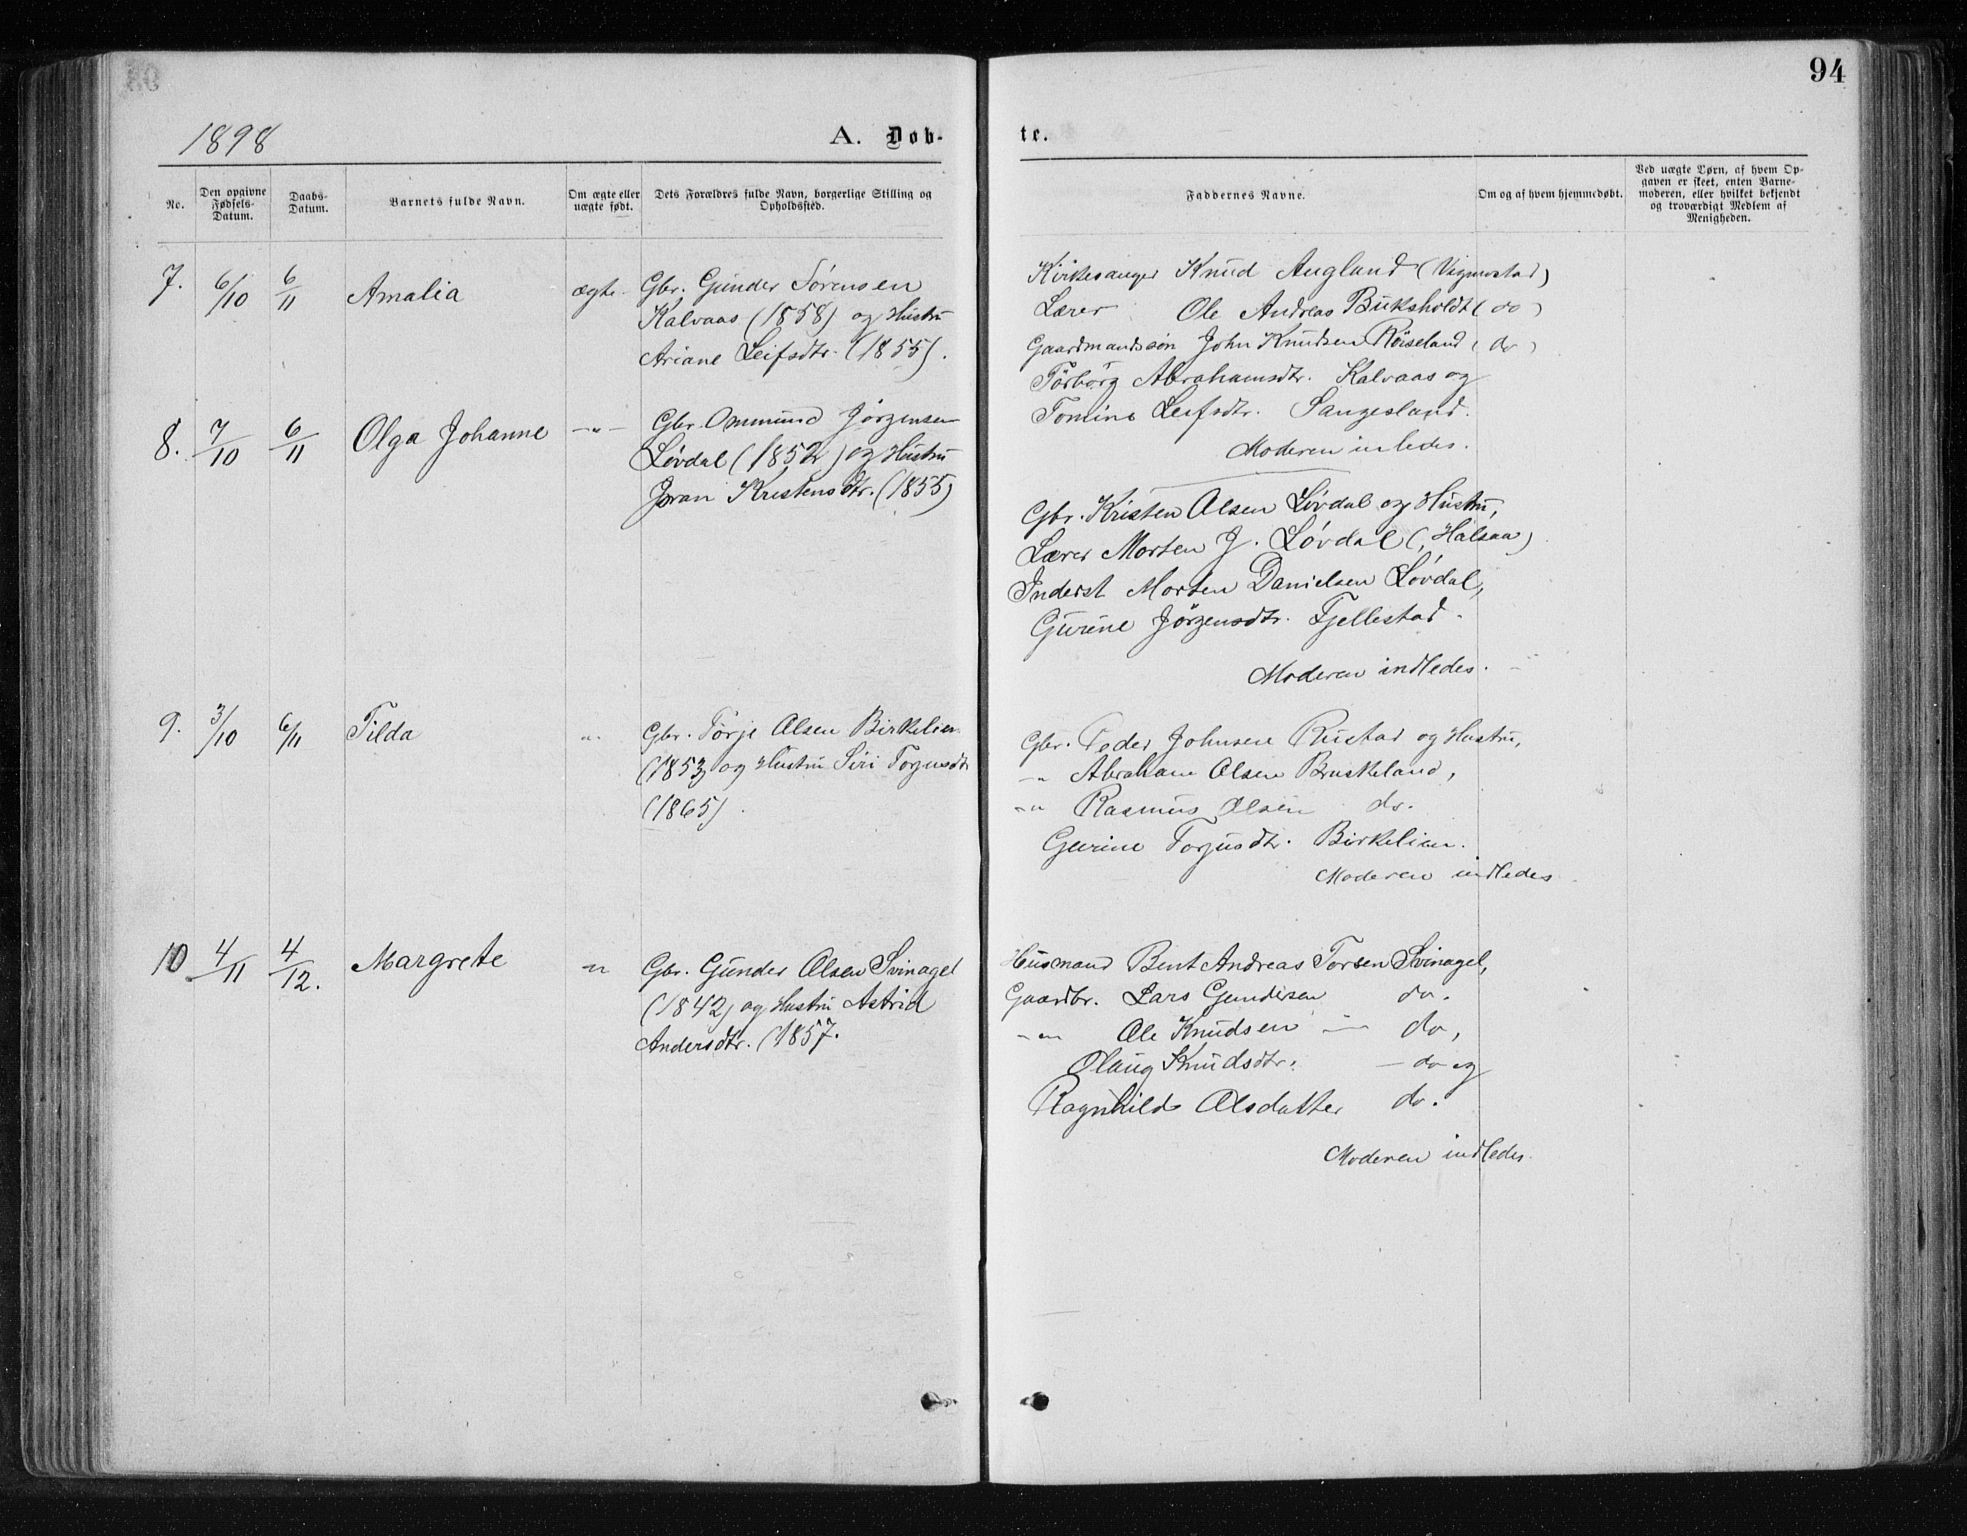 94
1898
A. Døb-
te.
No.
Den opgivne Fødsels-Datum.
Daabs-Datum.
Barnets fulde Navn.
Om ægte eller uægte født.
Dets Forældres fulde Navn, borgerlige Stilling og Opholdssted.
Faddernes Navne.
Om og af hvem hjemmedøbt.
Ved uægte Børn, af hvem Op-
gaven er skeet, enten Barne-
moderen, eller hvilket bekjendt
og troværdigt Medlem af
Menigheden.
7. 6/10 6/11 Amalia ægte.
Gbr. Gunder Sørensen
Kalvaas (1858) og Hustru
Ariane Leifsdtr. (1855).
Kirkesanger Knud Augland (Vigmostad)
Lærer Ole Andreas Buksholdt (do)
Gaardmandssøn John Knudsen Røiseland (do)
Tørborg Abrahamsdtr. Kalvaas og
Tomine Leifsdtr. Sangesland.
Moderen inledes.
8. 7/10 6/11 Olga Johanne -"-
Gbr. Ommund Jørgensen
Løvdal (1852) og Hustru
Joran Kristensdtr. (1855)
Gbr. Kristen Olsen Løvdal og Hustru,
Lærer Morten J. Løvdal (Halsaa)
Inderst Morten Danielsen Løvdal,
Gurine Jörgensdtr. Fjellestad.
Moderen indledes.
9. 3/10 6/11 Tilda "
Gbr. Törje Olsen Birkelien
(1853) og Hustru Siri Torjusdtr
(1865).
Gbr. Peder Johnsen Rustad og Hustru,
-" Abraham Olsen Bruskeland,
-" Rasmus Olsen do.
Gurine Torjusdtr. Birkelien.
Moderen indledes
10 4/11 4/12. Margrete -"
Gbr. Gunder Olsen Svinagel
(1842) og Hustru Astrid
Andersdtr. (1857.
Husmand Bent Andreas Torsen Svinagel,
Gaardbr. Lars Gundersen do.
-"- Ole Knudsen - do,
Olaug Knudsdtr. - do og
Ragnhild Olsdatter do.
Moderen indledes.